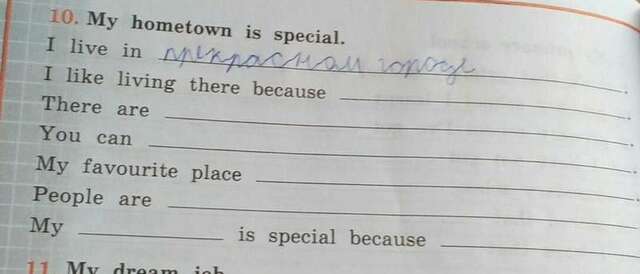 10. My hometown is special.
I live in прекрасном городе.
I like living there because ___.
There are ___.
You can ___.
My favourite place ___.
People are ___.
My ___ is special because ___.
11 My dream job